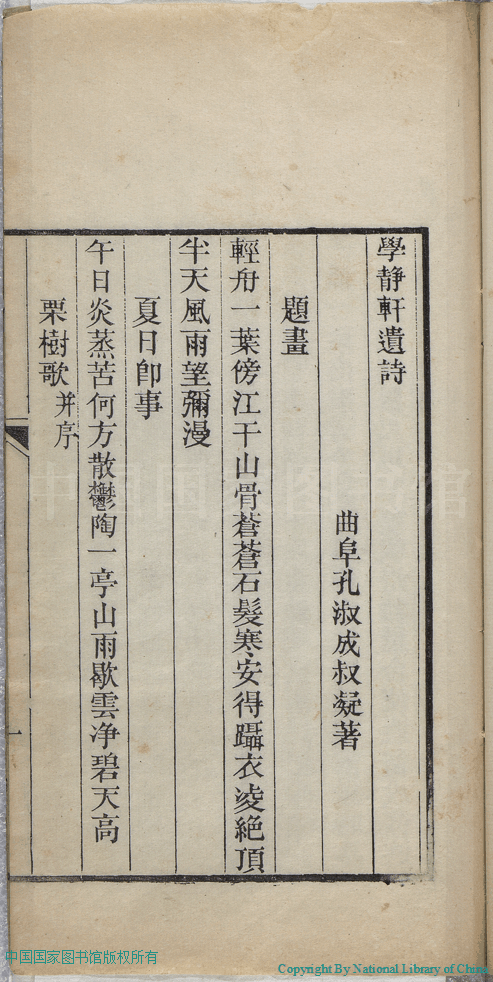 學靜軒遺詩
曲阜孔淑成叔凝著
題畫
輕舟一葉傍江干山骨蒼蒼石髮寒安得躡衣凌絶頂
半天風雨望彌漫
夏日卽事
午日炎蒸苦何方散鬱陶一亭山雨歇雲净碧天高
栗樹歌并序
一
中国国家图书馆
中国国家图书馆版权所有
Copyright By National Library of China